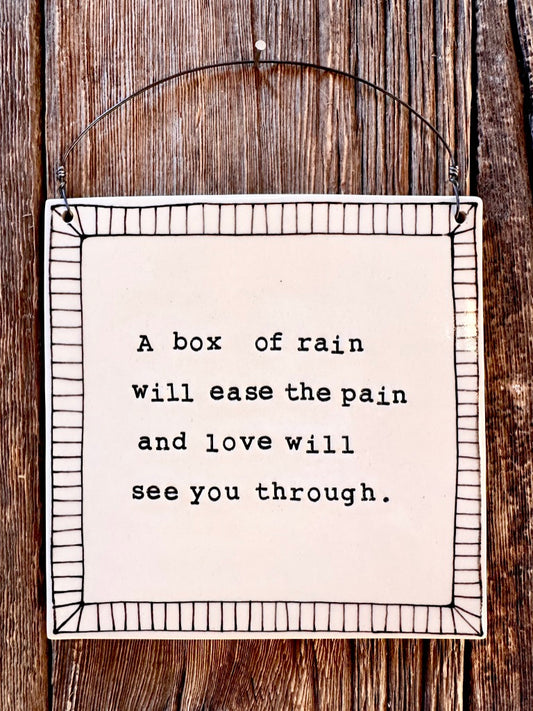 A box of rain
will ease the pain
and love will
see you through.